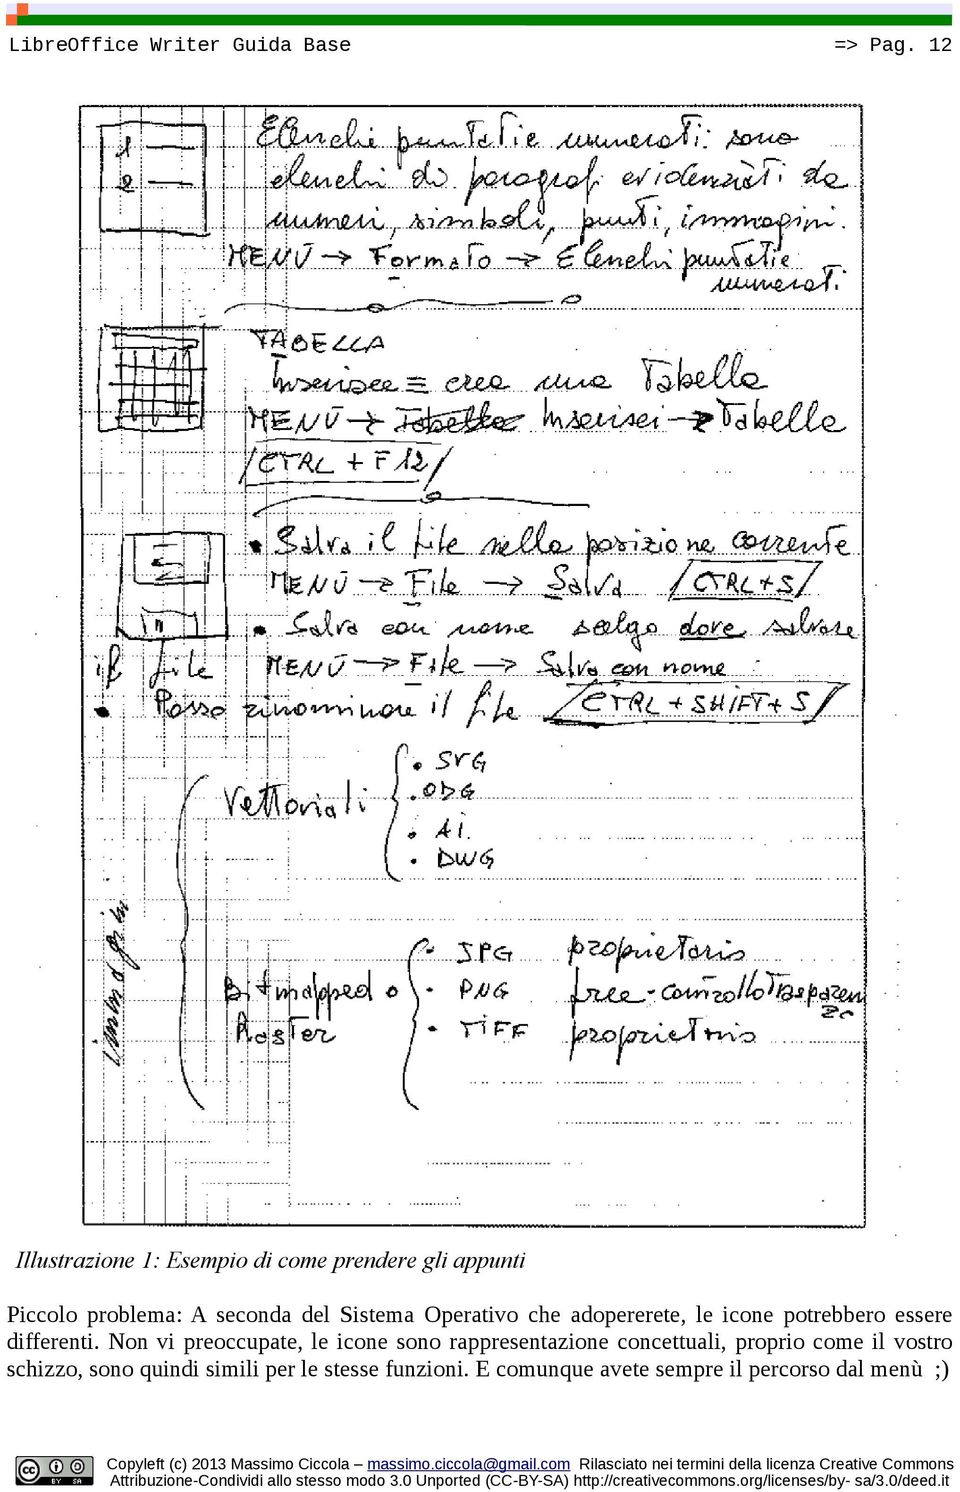 LibreOffice Writer Guida Base => Pag. 12
1
2
Elenchi puntati e numerati: sono
elenchi di paragrafi evidenziati da
numeri, simboli, punti, immagini.
MENÙ → Formato → Elenchi puntati e
numerati
TABELLA
Inserisce = crea una Tabella
MENÙ → Tabella Inserisci → Tabella
CTRL + F12
• Salva il file nella posizione corrente
MENÙ → File → Salva CTRL+S
• Salva con nome scelgo dove salvare
il file MENÙ → File → Salva con nome :
• Posso rinominare il file CTRL + SHIFT + S
immagini
Vettoriali
• SVG
• ODG
• Ai
• DWG
Bitmapped o
Raster
• JPG proprietario
• PNG free - controllo trasparen
za
• TIFF proprietario
Illustrazione 1: Esempio di come prendere gli appunti
Piccolo problema: A seconda del Sistema Operativo che adopererete, le icone potrebbero essere
differenti. Non vi preoccupate, le icone sono rappresentazione concettuali, proprio come il vostro
schizzo, sono quindi simili per le stesse funzioni. E comunque avete sempre il percorso dal menù ;)
cc BY SA
Copyleft (c) 2013 Massimo Ciccola – massimo.ciccola@gmail.com Rilasciato nei termini della licenza Creative Commons
Attribuzione-Condividi allo stesso modo 3.0 Unported (CC-BY-SA) http://creativecommons.org/licenses/by- sa/3.0/deed.it